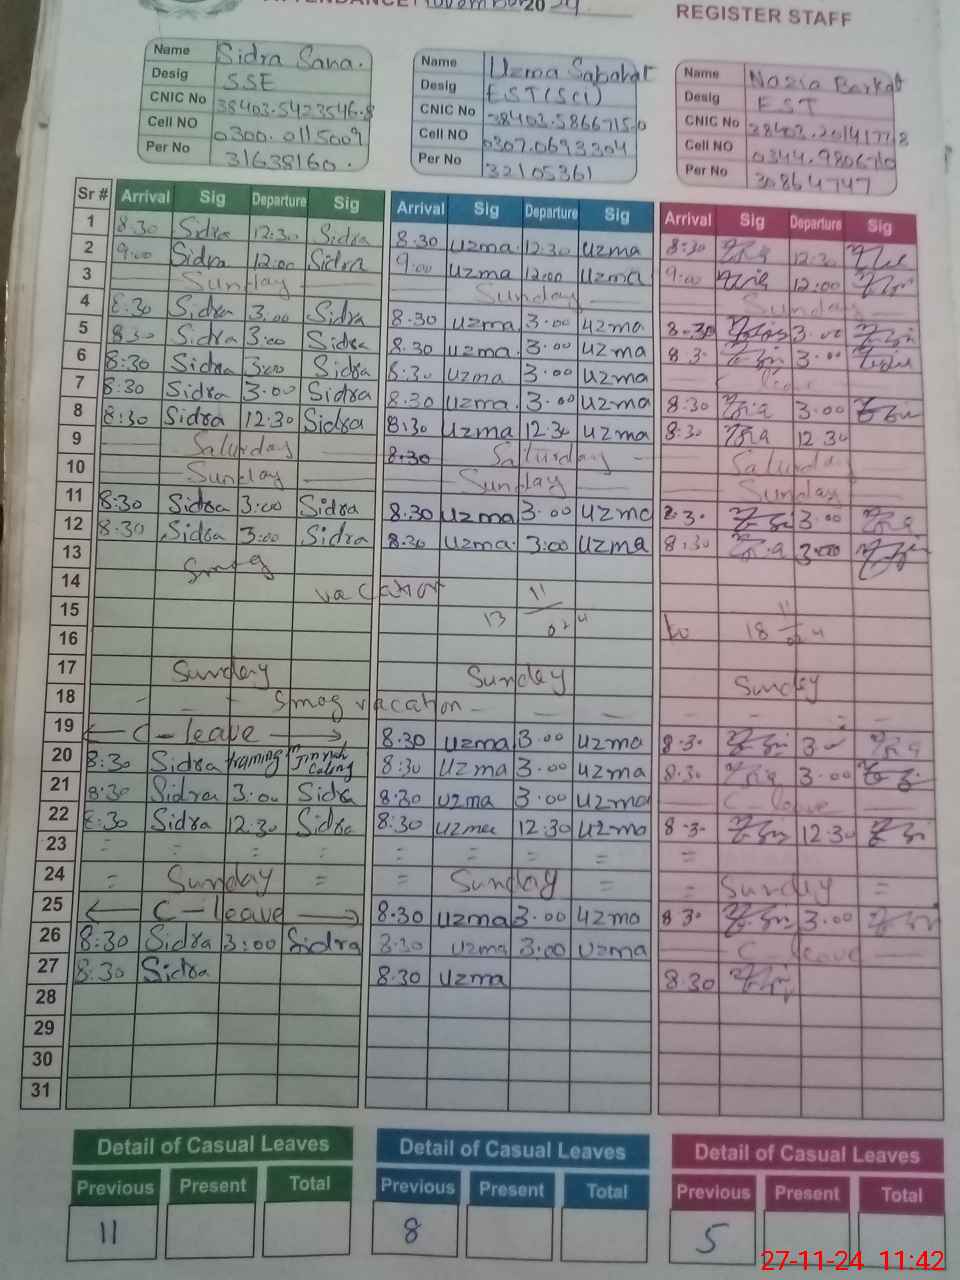 ATTENDANCE November 2024 REGISTER STAFF
Name Sidra Sana.
Desig SSE
CNIC No 38403.5423546.8
Cell NO 0300.0115009
Per No 31638160.
Name Uzma Sabahat
Desig EST(Sci)
CNIC No 38403.5866715.0
Cell NO 0307.0693304
Per No 32105361
Name Nazia Barkat
Desig EST
CNIC No
Cell NO
Per No 30864747
Sr # Arrival Sig Departure Sig Arrival Sig Departure Sig Arrival Sig Departure Sig
1 8.30 Sidra 12:30 Sidra 8.30 uzma. 12:30 uzma 8:30 12:30
2 9:00 Sidra 12:00 Sidra 9:00 uzma 12:00 uzma 9:00 12:00
3 Sunday Sunday Sunday
4 8:30 Sidra 3:00 Sidra 8.30 uzma 3.00 uzma 8.30 3.00
5 8:30 Sidra 3:00 Sidra 8.30 uzma. 3.00 uzma 8.3. 3.00
6 8:30 Sidra 3:00 Sidra 8:30 uzma 3.00 uzma
7 8:30 Sidra 3.00 Sidra 8.30 uzma. 3.00 uzma 8:30 3.00
8 8:30 Sidra 12:30 Sidra 8:30 uzma 12:30 uzma 8:30 12 30
9 Saturday 8.30 Saturday Saturday
10 Sunday Sunday Sunday
11 8:30 Sidra 3:00 Sidra 8.30 uzma 3.00 uzma 8.3. 3.00
12 8:30 Sidra 3:00 Sidra 8:30 uzma. 3:00 uzma 8:30 3:00
13 Smog
14 vacation 11
15 13 024 to 18 11
16
17 Sunday Sunday Sunday
18 Smog vacation
19 C-leave 8:30 uzma 3.00 uzma 8.3.
20 8:30 Sidra training 8:30 uzma 3.00 uzma 8.30 3.00
21 8:30 Sidra 3:00 Sidra 8:30 uzma 3.00 uzma C leave
22 8:30 Sidra 12:30 Sidra 8:30 uzma 12:30 uzma 8.3. 12:30
23 = = = = = = = = =
24 = Sunday = = Sunday = = Sunday =
25 C-leave 8:30 uzma 3.00 uzma 8 3. 3.00
26 8:30 Sidra 3:00 Sidra 8:30 uzma 3:00 uzma C leave
27 8:30 Sidra 8:30 uzma 8:30
28
29
30
31
Detail of Casual Leaves Detail of Casual Leaves Detail of Casual Leaves
Previous Present Total Previous Present Total Previous Present Total
11 8 5
27-11-24 11:42